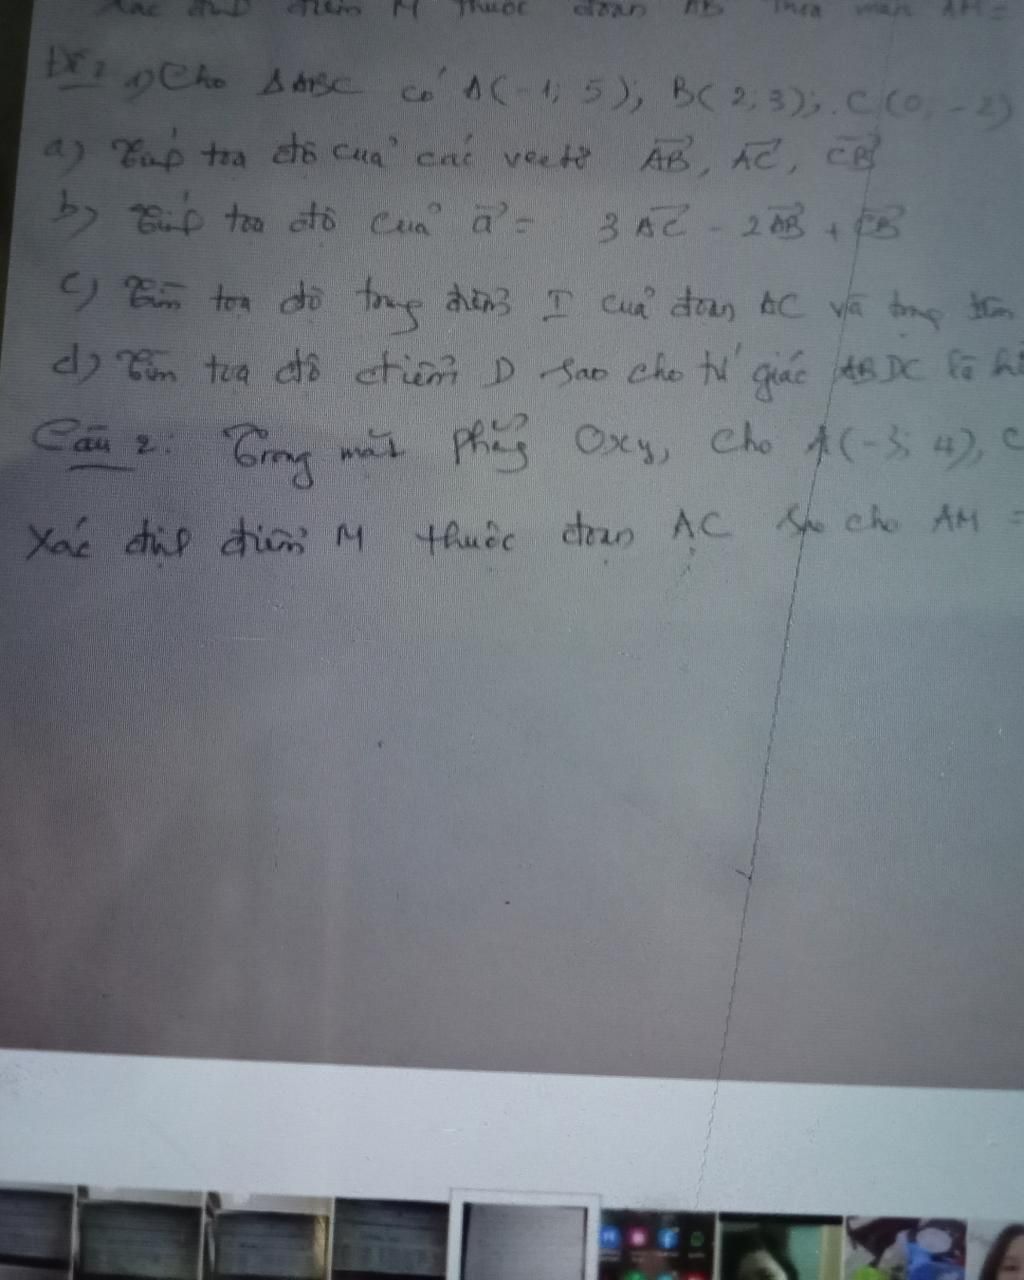 Xác định điểm M thuộc đoạn AB thỏa mãn AM =
Đề 2 1) Cho ΔABC có A(-1; 5); B(2; 3); C(0; -2)
a) Tính tọa độ của các vectơ AB, AC, CB
b) Tính tọa độ của a = 3 AC - 2 AB + CB
c) Tìm tọa độ trung điểm I của đoạn AC và trọng tâm
d) Tìm tọa độ điểm D sao cho tứ giác ABDC là
Câu 2: Trong mặt phẳng Oxy, Cho A(-3; 4), C
Xác định điểm M thuộc đoạn AC sao cho AM =